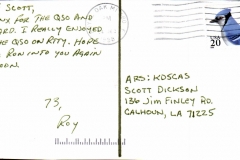 SCOTT,
NX FOR THE QSO AND
RD. I REALLY ENJOYED
THE QSO ON RTTY. HOPE
RUN INTO YOU AGAIN
OON.
73,
ROY
USA
20
ARS: KD5CAS
SCOTT DICKSON
136 JIM FINLEY RD.
CALHOUN, LA 71225